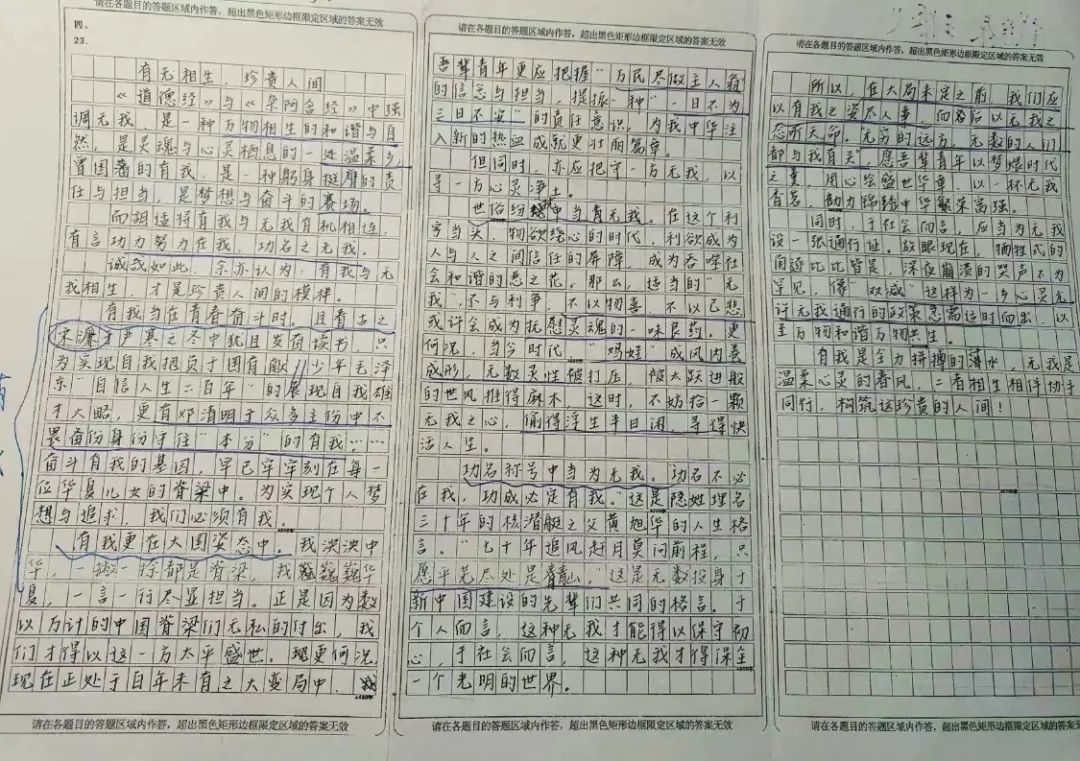 请在各题目的答题区域内作答,超出黑色矩形边框限定区域的答案无效
四、
23.
有无相生,珍贵人间
《道德经》与《杂阿含经》中强
调无我,是一种万物相生的和谐与自
然,是灵魂与心灵栖息的一处温柔乡,
曾国藩的有我,是一种躬身挺膺的责
任与担当,是梦想与奋斗的赛场。
而胡适将有我与无我有机相连,
有言功力努力在我,功名之无我。
诚哉如此,余亦认为:有我与无
我相生,才是珍贵人间的模样。
有我当在青春奋斗时,且看古之
宋濂于严寒之冬中犹且英奋读书,只
为实现自我抱负于国有献,少年毛泽
东“自信人生二百年”的展现自我雄
才大略,更有邓清明于众多主份中不
畏备份身份守住“本分”的有我……
奋斗有我的基因,早已牢牢刻在每一
位华夏儿女的脊梁中。为实现个人梦
想与追求,我们必须有我。
有我更在大国姿态中。我泱泱中
华,一撇一捺都是脊梁,我巍巍华
夏,一言一行尽显担当。正是因为数
以万计的中国脊梁们无私的付出,我
们才得以这一方太平盛世。更何况
现在正处于百年未有之大变局中,我
请在各题目的答题区域内作答,超出黑色矩形边框限定区域的答案无效
请在各题目的答题区域内作答,超出黑色矩形边框限定区域的答案无效
吾辈青年更应把握“万民尽做主人翁”
的信念与担当,提振一种“一日不为
三日不安”的责任意识,为我中华注
入新的热血成就更壮丽篇章。
但同时,亦应把守一方无我,以
寻一方心灵净土。
世俗纷扰中当有无我。在这个利
字当头,物欲绕心的时代,利欲成为
人与人之间信任的屏障,成为吞噬社
会和谐的恶之花。那么,适当的“无
我”,不与利争,不以物喜,不以己悲
或许会成为抚慰灵魂的一味良药。更
何况,当今时代,“鸡娃”成风内卷
成形,无数灵性被打压,被大跃进般
的世风推得麻木,这时,不妨拾一颗
无我之心,偷得浮生半日闲,寻得快
活人生。
功名称号中当为无我。功名不必
在我,功成必定有我。”这是隐姓埋名
三十年的核潜艇之父黄旭华的人生格
言。“七十年追风赶月莫问前程,只
愿平芜尽处是青山,”这是无数投身于
新中国建设的先辈们共同的格言。于
个人而言,这种无我才能得以保守初
心,于社会而言,这种无我才得保全
一个光明的世界。
请在各题目的答题区域内作答,超出黑色矩形边框限定区域的答案无效
请在各题目的答题区域内作答,超出黑色矩形边框限定区域的答案无效
所以,在大局未定之前,我们应
以有我之姿尽人事,向客后以无我之
念听天命。无穷的远方,无数的人们
都与我有关,愿吾辈青年以梦煨时代
之羹,用心绘盛世华章,以一杯无我
香茗,助力锦绣中华繁荣富强。
同时,于社会而言,应当为无我
设一张通行证。放眼现在,牺牲式的
角逐比比皆是,深夜崩溃的哭声不为
罕见,像“双减”这样为一乡心灵无
许无我通行的政策急需适时而出,以
至万物和谐万物共生。
有我是全力拼搏的薄冰,无我是
温柔心灵的春风,二者相生相伴协手
同行,构筑这珍贵的人间!
请在各题目的答题区域内作答,超出黑色矩形边框限定区域的答案无效